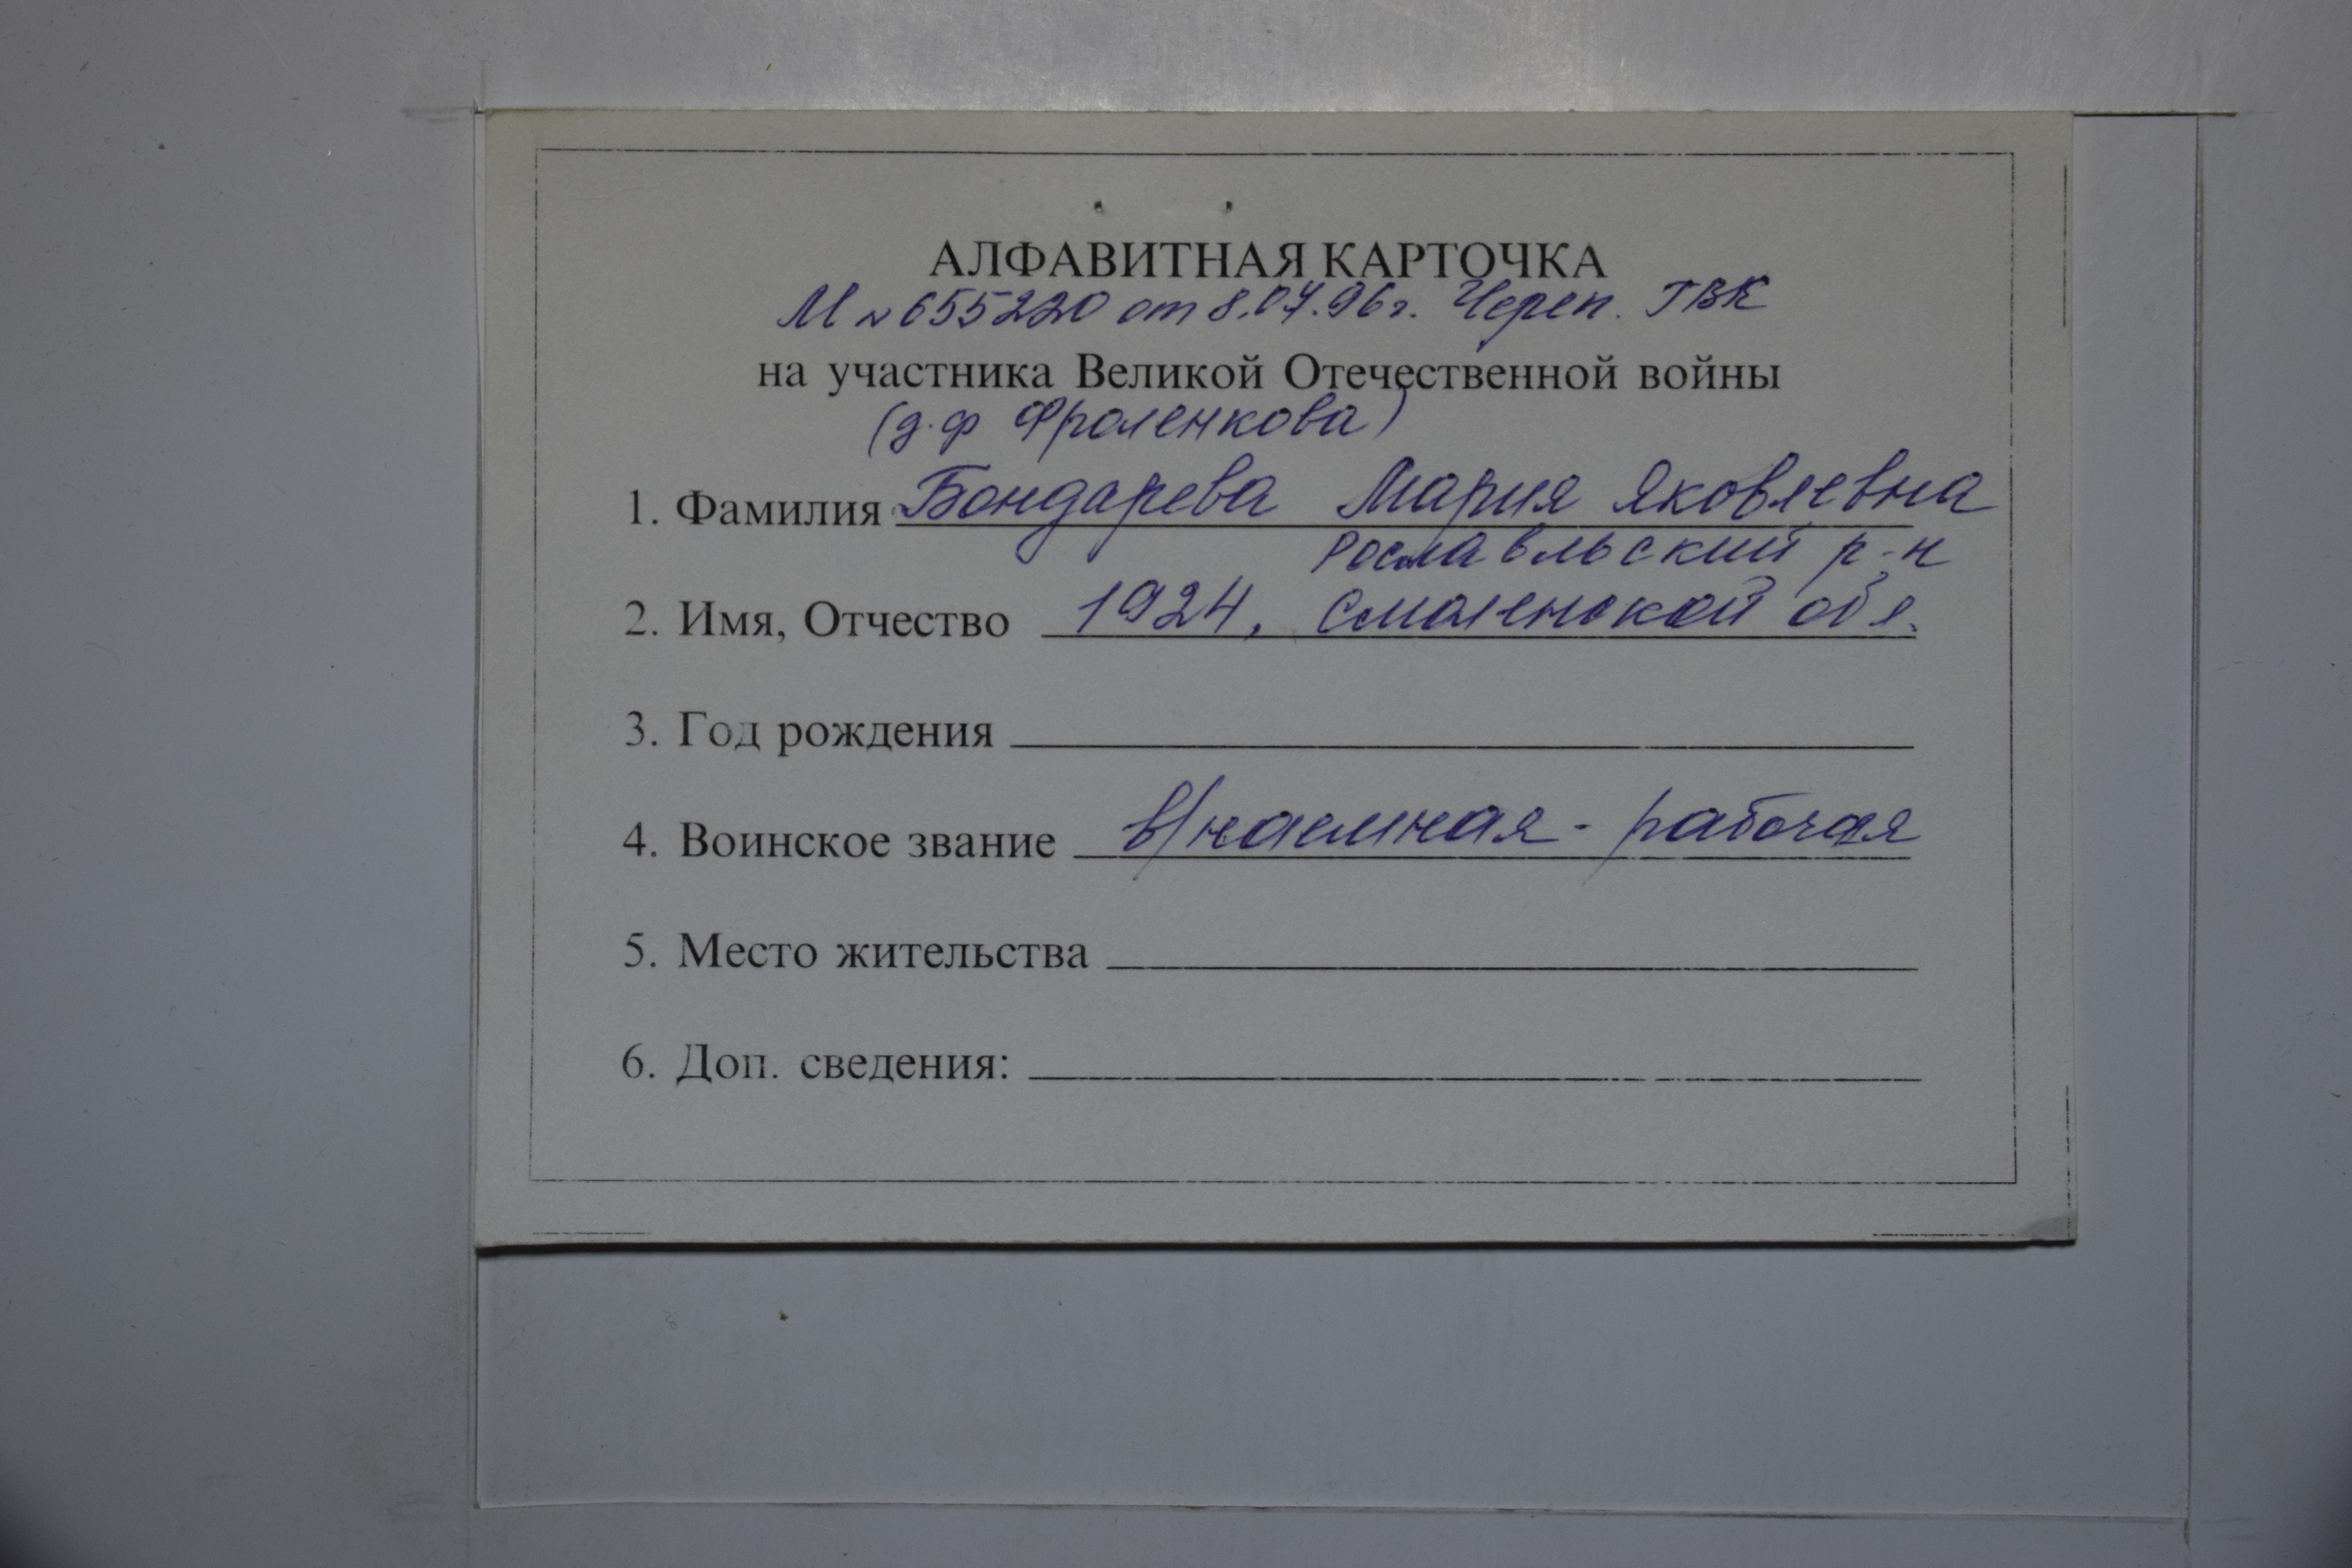 АЛФАВИТНАЯ КАРТОЧКА
М № 655220 от 8.07.96г. Череп. ГВК
на участника Великой Отечественной войны
(д.ф Фроленкова)
1. Фамилия Бондарева Мария Яковлевна
Рославльский р-н
2. Имя, Отчество 1924, Смоленской обл.
3. Год рождения
4. Воинское звание в/наемная - рабочая
5. Место жительства
6. Доп. сведения: